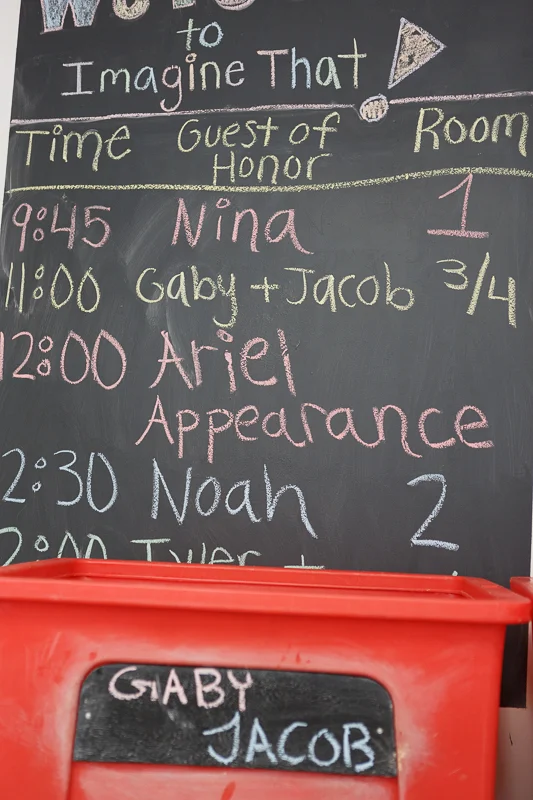 to
Imagine That
Time Guest of Honor Room
9:45 Nina 1
11:00 Gaby + Jacob 3/4
12:00 Ariel
Appearance
2:30 Noah 2
2:00 Tyler +
GABY
JACOB